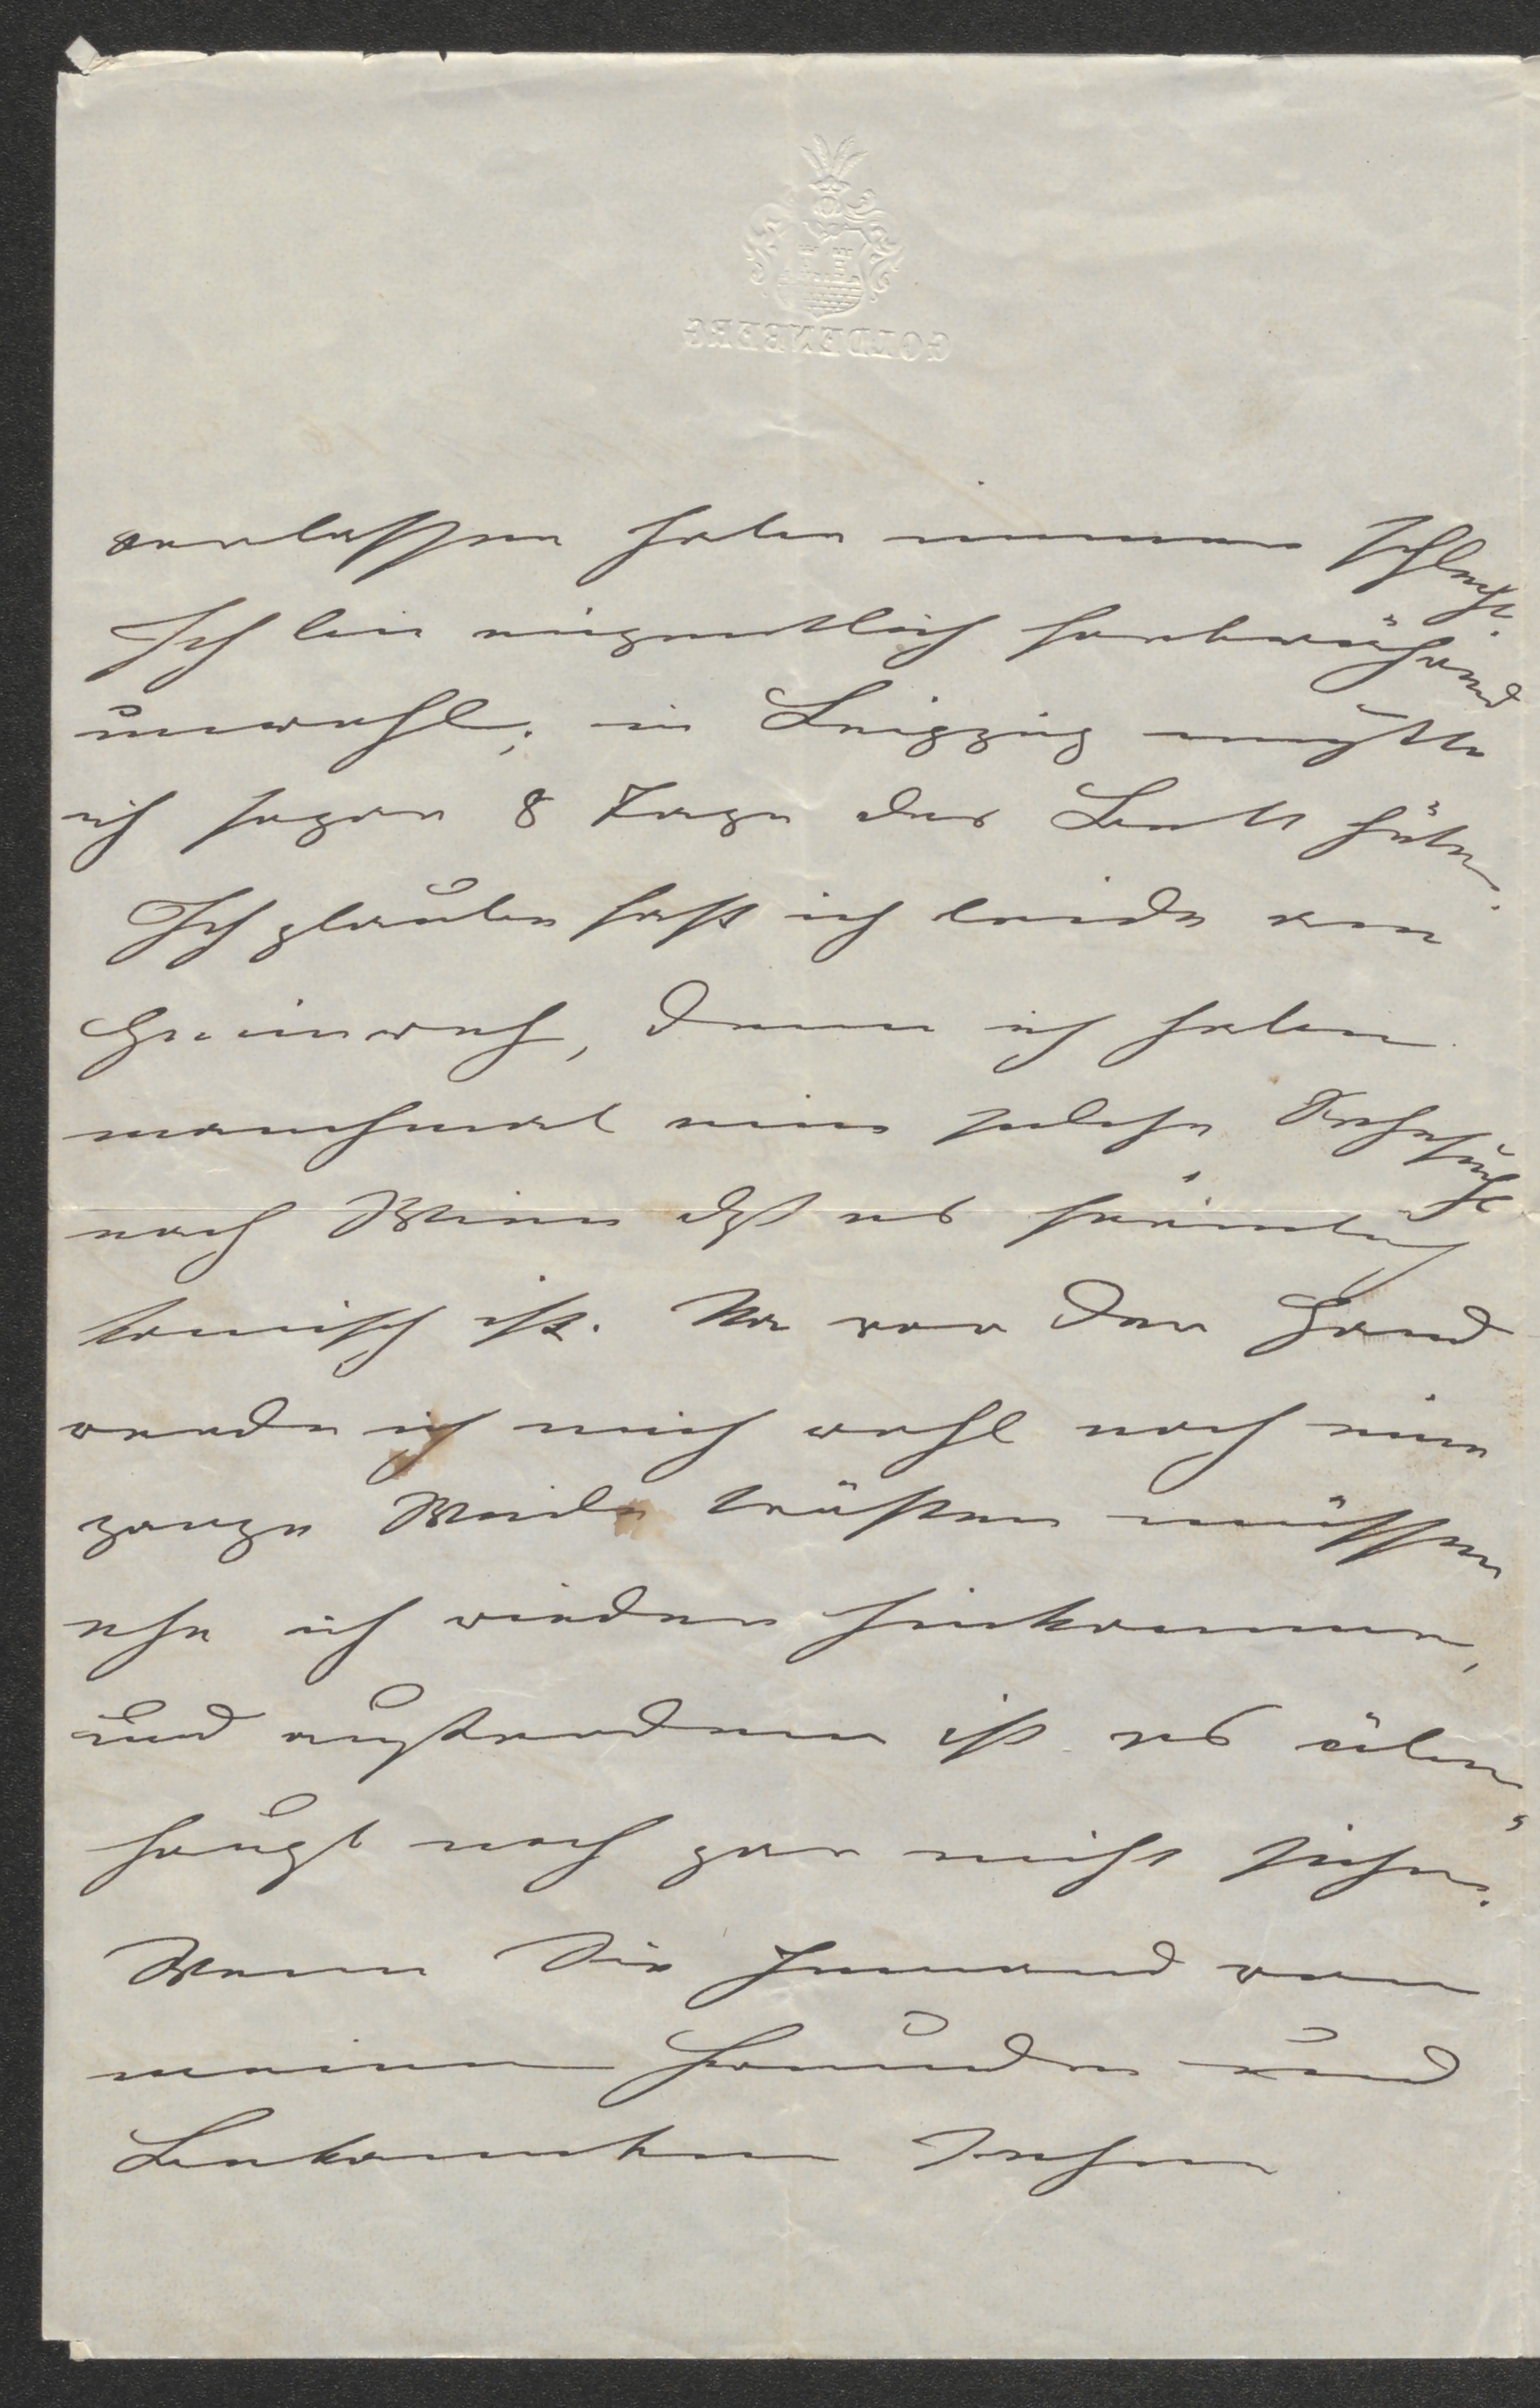 GOLDENBERG
verlassen habe immer schlecht.
Ich bin eigentlich fortwährend
unwohl; in Leipzig mußte
ich sogar 8 Tage das Bett hüten.
Ich glaube fast ich leide an
Heimweh, denn ich habe
manchmal eine solche Sehnsucht
nach Wien daß es förmlich
komisch ist. Na vor der Hand
werde ich mich wohl noch eine
ganze Weile trösten müssen
ehe ich wieder hinkomme,
und außerdem ist es über-
haupt noch gar nicht sicher.
Wenn Sie Jemand von
meinen Freunden und
Bekannten sehen